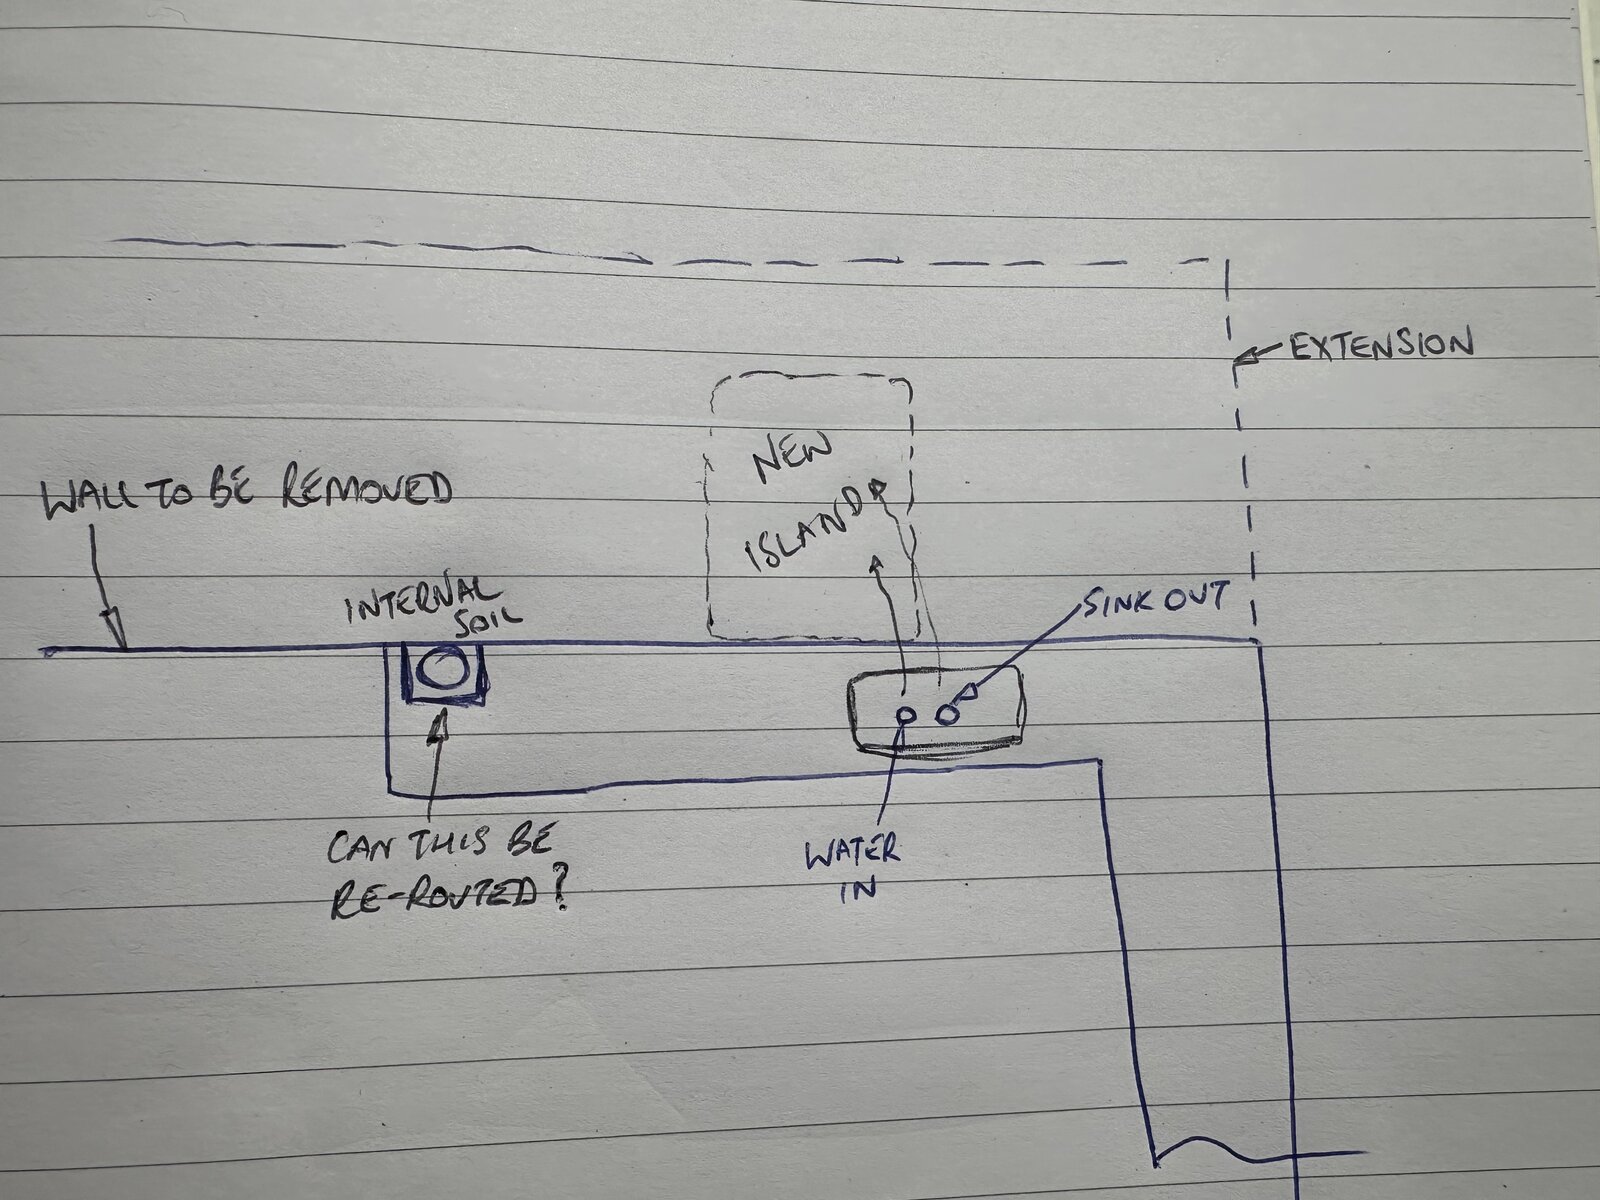 EXTENSION
NEW
ISLAND
WALL TO BE REMOVED
INTERNAL
SOIL
SINK OUT
CAN THIS BE
RE-ROUTED?
WATER
IN